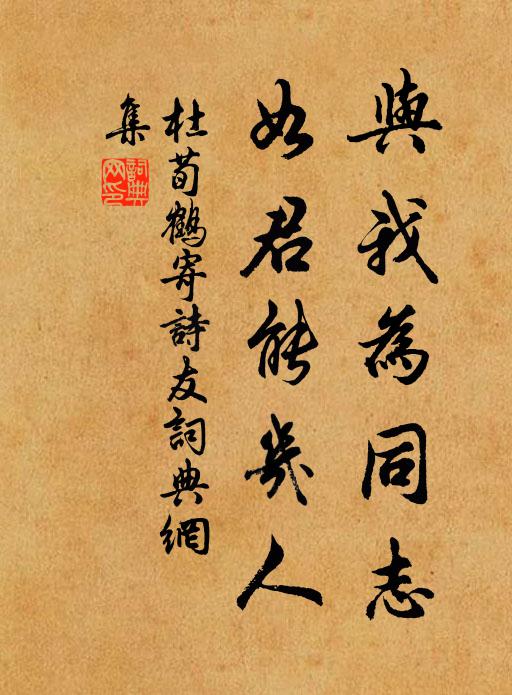 與我為同志
如君能幾人
杜荀鶴寄詩友詞典網
集
詞典網印